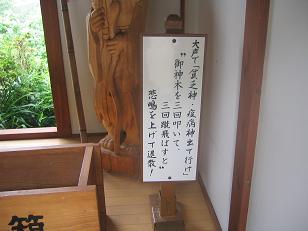 大声で「貧乏神・疫病神出て行け」
"御神木を三回叩いて、
三回蹴飛ばすと"
悲鳴を上げて退散!